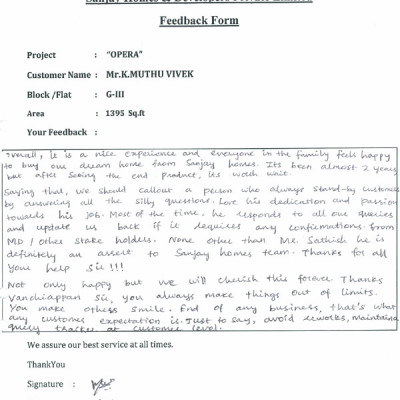 Sanjay Homes & Developers Private Limited
Feedback Form
Project : "OPERA"
Customer Name : Mr.K.MUTHU VIVEK
Block /Flat : G-III
Area : 1395 Sq.ft
Your Feedback :
Overall, It is a nice experience and everyone in the family feel happy
to buy our dream home from Sanjay homes. Its been almost 2 years
but after seeing the end product, its worth wait.
Saying that, we should callout a person who always stand-by customers
by answering all the silly questions. Love his dedication and passion
towards his job. Most of the time, he responds to all our queries
and update us back if it requires any confirmations from
MD / other stake holders. None other than Mr Sathish he is
definitely an assert to Sanjay homes team. Thanks for all
your help Sir !!!
Not only happy but we will cherish this forever Thanks
Vanchiappan Sir, you always make things out of limits.
You make others smile. End of any business, that's what
any customer expectation is. Just to say, avoid reworks, maintain
query tracker at customer level.
We assure our best service at all times.
ThankYou
Signature :